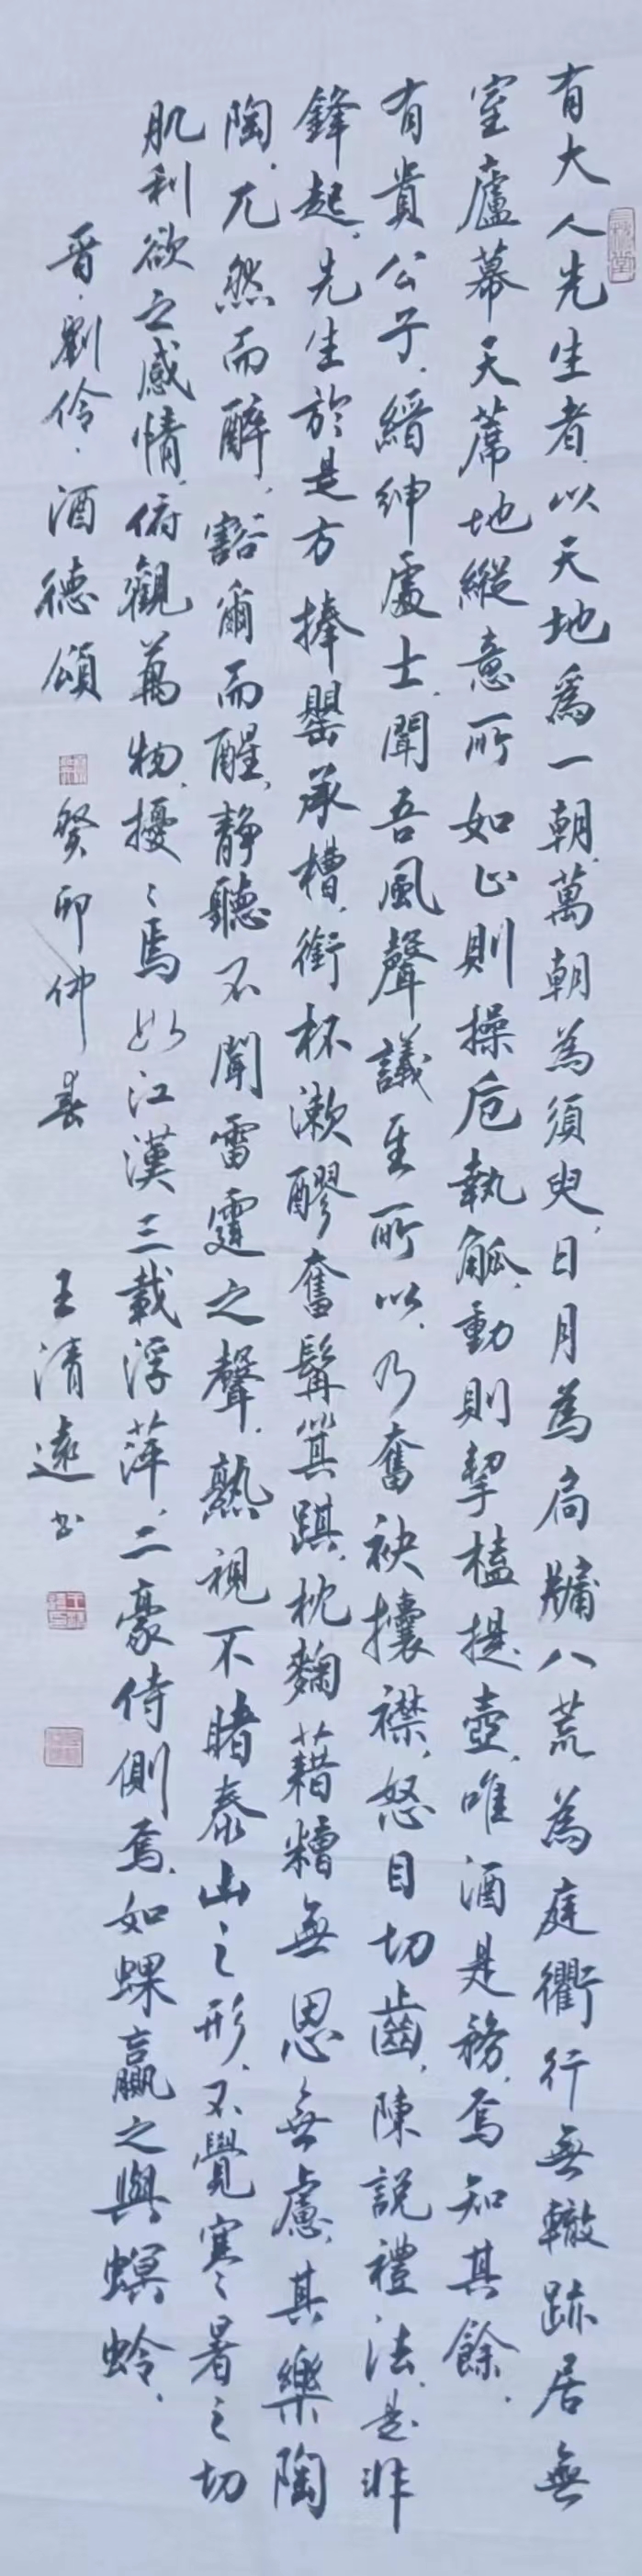 有大人先生者以天地為一朝萬朝為須臾日月為扃牖八荒為庭衢行無轍跡居無
室廬幕天蓆地縱意所如止則操卮執觚動則挈榼提壺唯酒是務焉知其餘
有貴公子縉紳處士聞吾風聲議其所以乃奮袂攘襟怒目切齒陳說禮法是非
鋒起先生於是方捧罌承槽銜杯漱醪奮髯箕踞枕麴藉糟無思無慮其樂陶
陶兀然而醉豁爾而醒靜聽不聞雷霆之聲熟視不睹泰山之形不覺寒暑之切
肌利欲之感情俯觀萬物擾擾焉如江漢三載浮萍二豪侍側焉如蜾蠃之與螟蛉
晉劉伶酒德頌 癸卯仲春 王清遠书